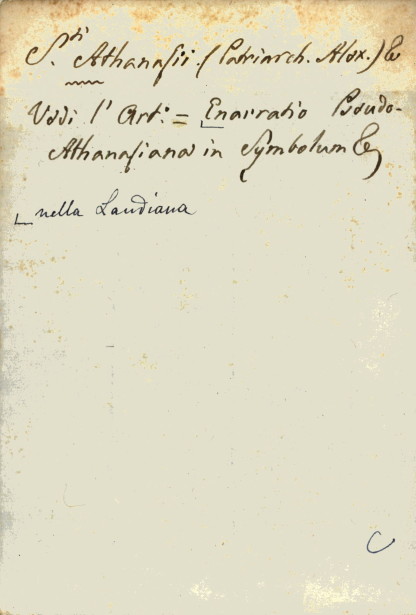 S.ti Athanasii. (Patriarch. Alex.) &
Vedi l' Art.o = Enarratio Pseudo-
Athanasiana in Symbolum &
nella Landiana
C